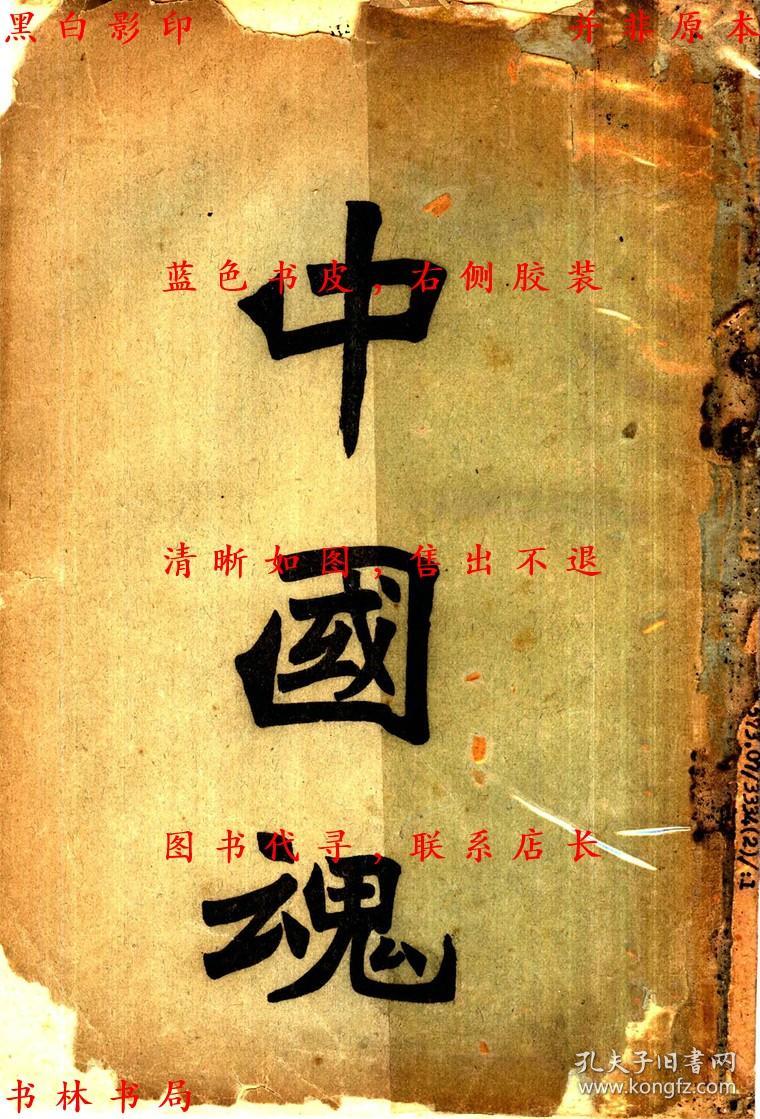 黑白影印
并非原本
中
蓝色书皮,右侧胶装
國
清晰如图,售出不退
魂
图书代寻,联系店长
书林书局
孔夫子旧书网
www.kongfz.com